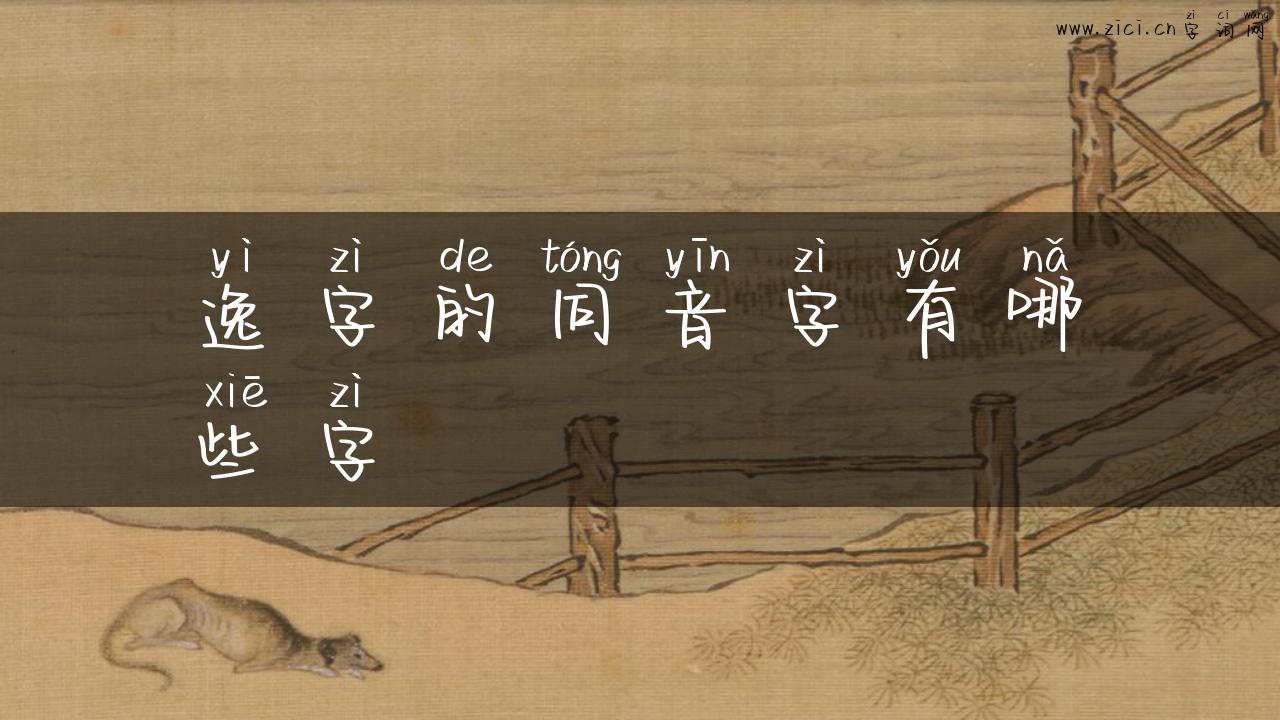 zì cí wǎng
www.zici.cn 字词网
yì zì de tóng yīn zì yǒu nǎ
逸字的同音字有哪
xiē zì
些字